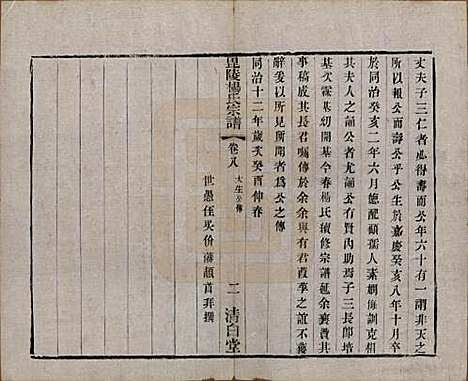 丈夫子三仁者必得壽而公年六十有一謂非天之
所以報公而壽公乎公生於嘉慶癸亥八年十月卒
於同治癸亥二年六月德配顧孺人素嫻姆訓克相
其夫人之誦公者尤誦公有賢內助焉子三長郎培
基次霖基幼開基今春楊氏續修宗譜延余襄贊其
事稿成其長君囑傳於余余與有君葭莩之誼不獲
辭爰以所見所聞者為公之傳
同治十二年歲次癸酉仲春
世愚侄吳份薌頓首拜撰
毘陵楊氏宗譜 卷八 大生公傳 二 清白堂